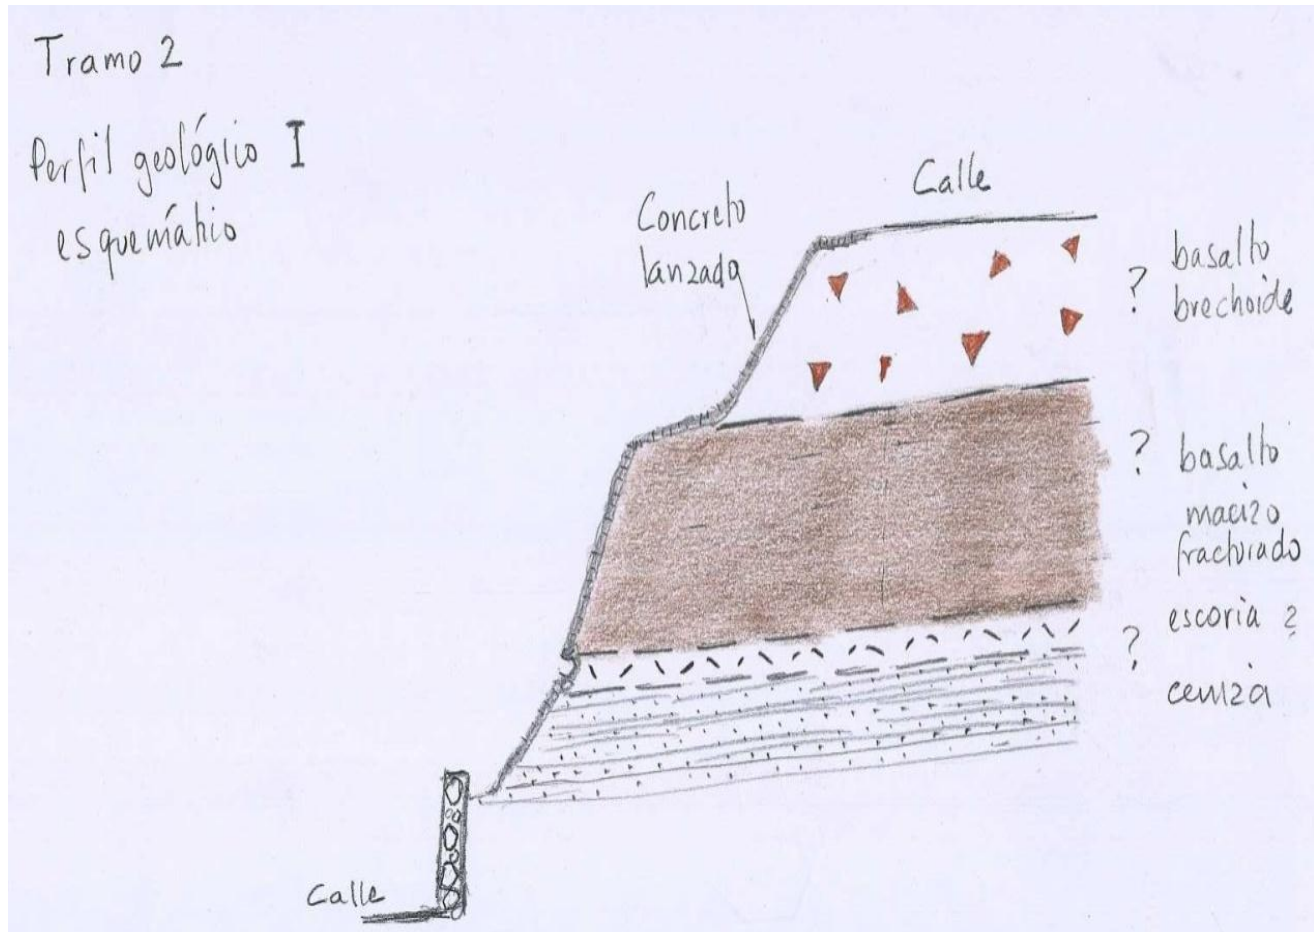 Tramo 2
Perfil geológico I
esquemático
Calle
Concreto
lanzado
? basalto
brechoide
? basalto
macizo
fracturado
escoria ?
?
ceniza
Calle